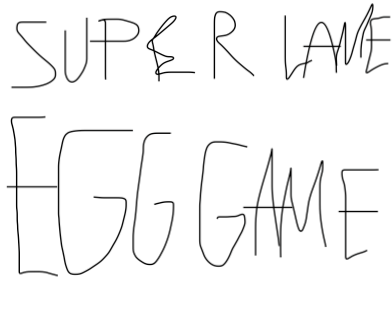 SUPER LAME
EGG GAME